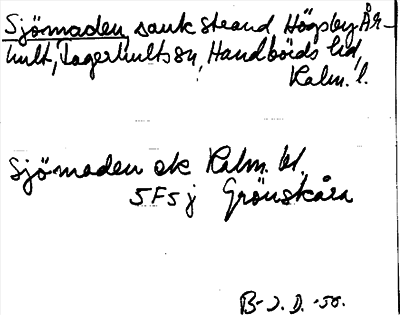 Sjömaden, sank strand, Högsby-År-
hult, Fagerhults sn, Handbörds hd,
Kalm. l.
Sjömaden ek Kalm. bl.
5F5j Grönskåra
B-J.D.-58.